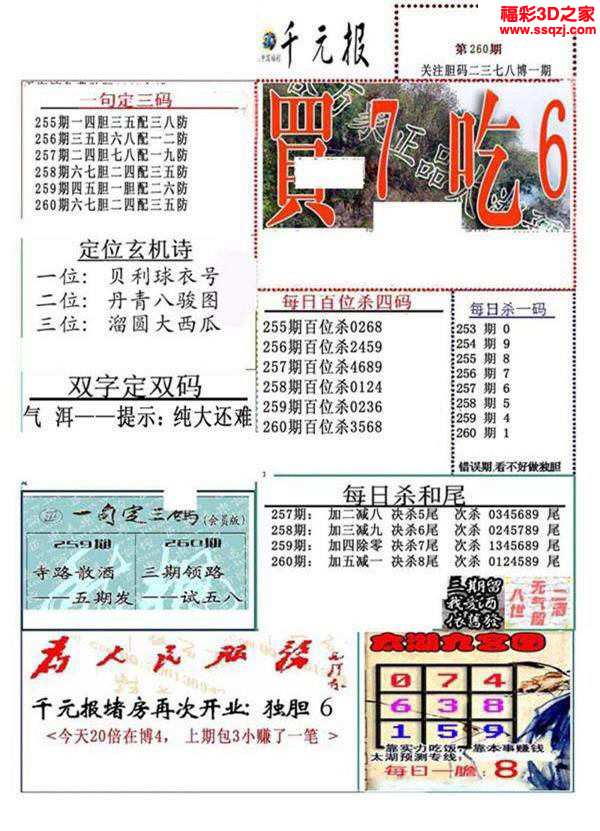 福彩3D之家
www.ssqzj.com
千元报
第260期
关注胆码二三七八博一期
一句定三码
255期一四胆三五配三八防
256期三五胆六八配一二防
257期二四胆七八配一九防
258期六七胆二四配三五防
259期四五胆一胆配二六防
260期六七胆二四配三五防
買 7 吃 6
定位玄机诗
一位: 贝利球衣号
二位: 丹青八骏图
三位: 溜圆大西瓜
每日百位杀四码
255期百位杀0268
256期百位杀2459
257期百位杀4689
258期百位杀0124
259期百位杀0236
260期百位杀3568
每日杀一码
253 期 0
254 期 9
255 期 8
256 期 7
257 期 6
258 期 5
259 期 4
260 期 1
错误期,看不好做独胆
双字定双码
气 洱——提示: 纯大还难
一句定三码(会员版)
259期 260期
寺路散酒 三期领路
——五期发 ——试五八
每日杀和尾
257期: 加二减八 决杀5尾 次杀 0345689 尾
258期: 加三减九 决杀6尾 次杀 0245789 尾
259期: 加四除零 决杀7尾 次杀 1345689 尾
260期: 加五减一 决杀8尾 次杀 0124589 尾
三期留
为人民服务
千元报堵房再次开业: 独胆 6
<今天20倍在博4, 上期包3小赚了一笔 >
太湖九宫图
0 7 4
6 3 8
1 5 9
靠实力吃饭, 靠本事赚钱
太湖预测专线,
每日一胆: 8